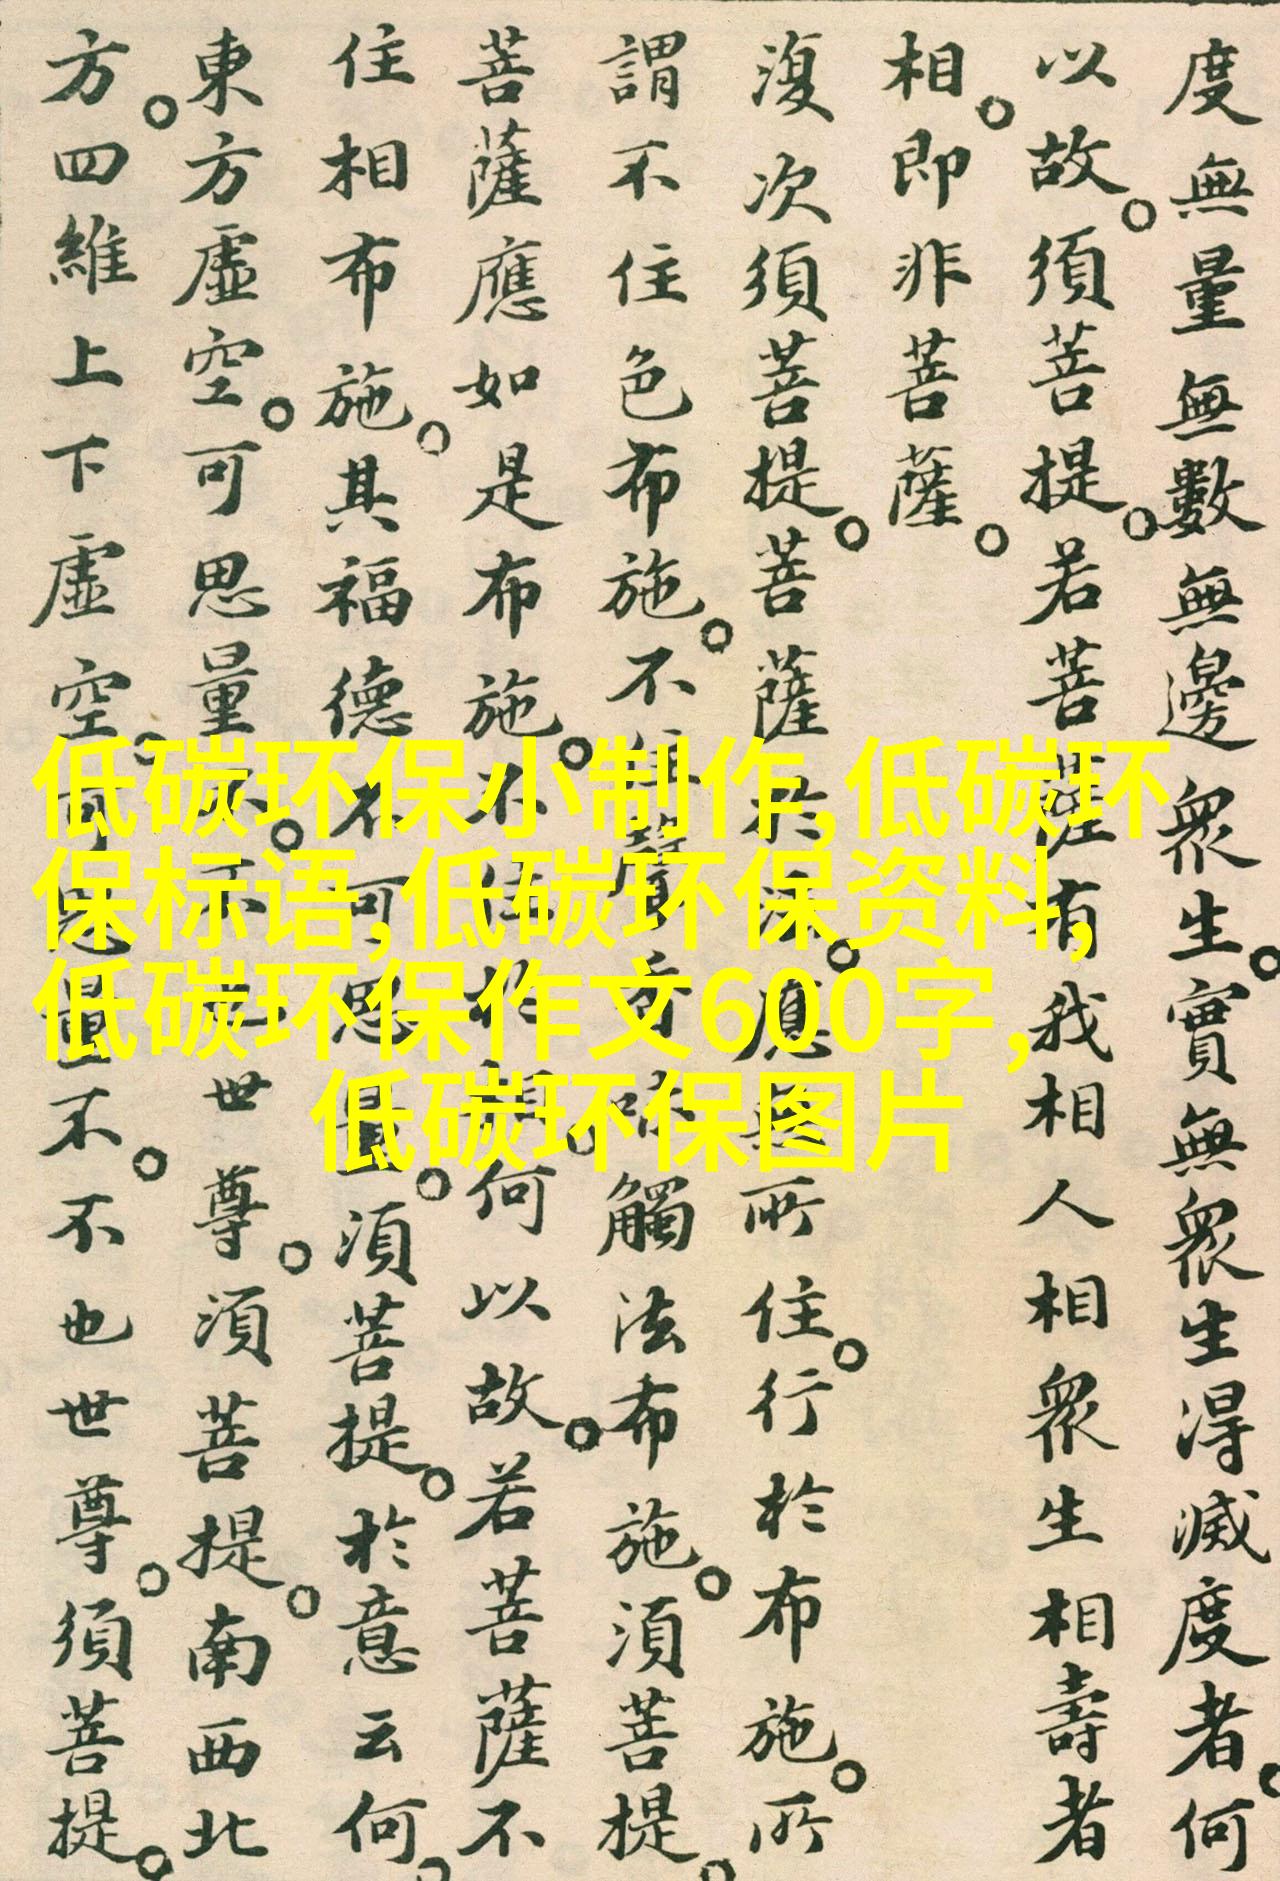 度無量無數無邊眾生。實無眾生得滅度者。何
以故。須菩提。若菩薩有我相人相眾生相壽者
相。即非菩薩。
復次須菩提。菩薩於法。應無所住。行於布施。所
謂不住色布施。不住聲香味觸法布施。須菩提。
菩薩應如是布施。不住於相。何以故。若菩薩不
住相布施。其福德不可思量。須菩提。於意云何。
東方虛空。可思量不。不也世尊。須菩提。南西北
方。四維上下虛空。可思量不。不也世尊。須菩提。
低碳环保小制作,低碳环
保标语,低碳环保资料,
低碳环保作文600字,
低碳环保图片